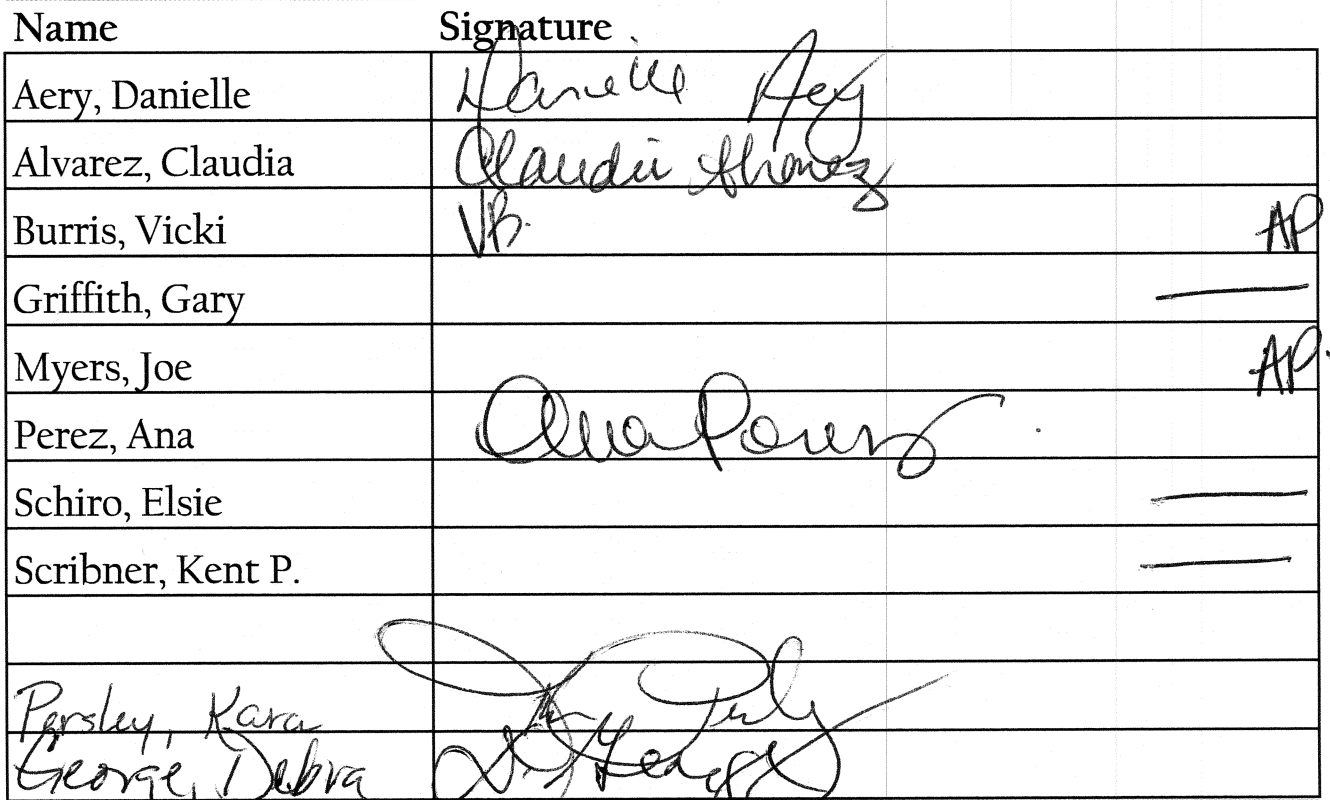 Name Signature
Aery, Danielle Danielle Aery
Alvarez, Claudia Claudia Alvarez
Burris, Vicki VB. AP
Griffith, Gary —
Myers, Joe AP.
Perez, Ana Ana Perez
Schiro, Elsie —
Scribner, Kent P. —
Persley, Kara
George, Debra D George